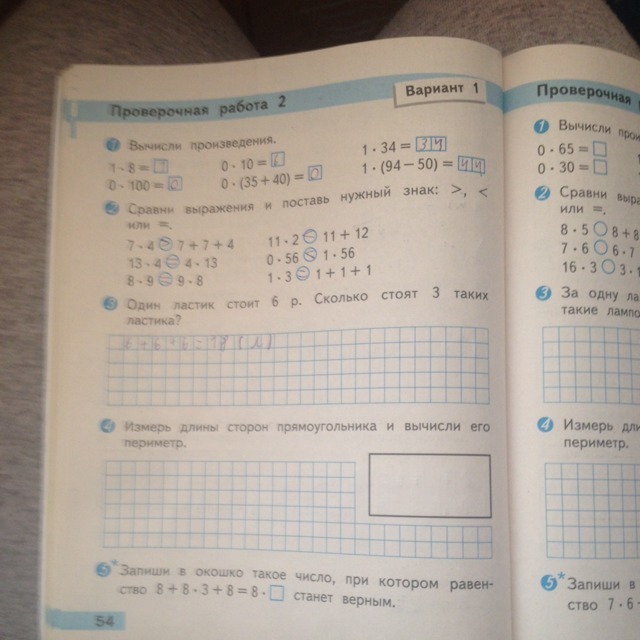 Проверочная работа 2
Вариант 1
1 Вычисли произведения.
1 · 8 =
0 · 10 =
1 · 34 = 34
0 · 100 = 0
0 · (35 + 40) = 0
1 · (94 − 50) = 44
2 Сравни выражения и поставь нужный знак: >, <
или =.
7 · 4 > 7 + 7 + 4
11 · 2 11 + 12
13 · 4 = 4 · 13
0 · 56 < 1 · 56
8 · 9 = 9 · 8
1 · 3 = 1 + 1 + 1
3 Один ластик стоит 6 р. Сколько стоят 3 таких
ластика?
6 + 6 + 6 = 18
4 Измерь длины сторон прямоугольника и вычисли его
периметр.
5* Запиши в окошко такое число, при котором равен-
ство 8 + 8 · 3 + 8 = 8 · станет верным.
54
Проверочная
1 Вычисли
0 · 65 =
0 · 30 =
2 Сравни
или =.
8 · 5 8 + 8
7 · 6 6 · 7
16 · 3 3 ·
3 За одну
такие
4 Измерь
периметр.
5* Запиши в
ство 7 · 6